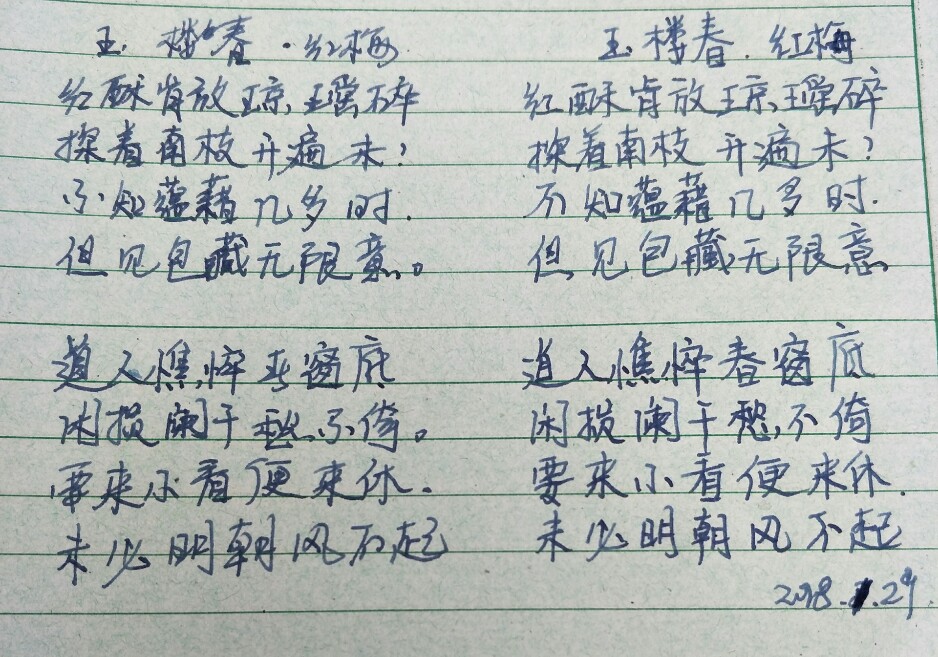 玉楼春·红梅
红酥肯放琼瑶碎
探着南枝开遍未?
不知蕴藉几多时.
但见包藏无限意。
道人憔悴春窗底
闲损阑干愁不倚。
要来小看便来休.
未必明朝风不起
玉楼春.红梅
红酥肯放琼瑶碎
探着南枝开遍未?
不知蕴藉几多时.
但见包藏无限意
道人憔悴春窗底
闲损阑干愁不倚
要来小看便来休.
未必明朝风不起
2018.1.29.